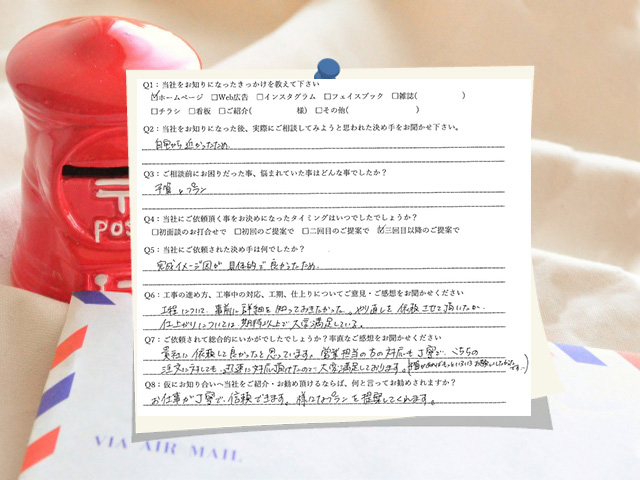 Q1：当社をお知りになったきっかけを教えて下さい
☑ホームページ　□Web広告　□インスタグラム　□フェイスブック　□雑誌(　　　　)
□チラシ　□看板　□ご紹介(　　　　様)　□その他(　　　　　　)
Q2：当社をお知りになった後、実際にご相談してみようと思われた決め手をお聞かせ下さい。
自宅から近かったため
Q3：ご相談前にお困りだった事、悩まれていた事はどんな事でしたか？
予算とプラン
Q4：当社にご依頼頂く事をお決めになったタイミングはいつでしたでしょうか？
□初面談のお打合せで　□初回のご提案で　□二回目のご提案で　☑三回目以降のご提案で
Q5：当社にご依頼された決め手は何でしたか？
完成イメージ図が具体的で良かったため。
Q6：工事の進め方、工事中の対応、工期、仕上りについてご意見・ご感想をお聞かせください
工程について、事前に詳細を知っておきたかった。やり直しを依頼させて頂いたが、
仕上がりについては期待以上で大変満足している。
Q7：ご依頼されて総合的にいかがでしたでしょうか？率直なご感想をお聞かせください
貴社に依頼して良かったと思っています。営業担当の方の対応も丁寧で、こちらの
注文に対しても迅速に対応頂けたので大変満足しております。
Q8：仮にお知り合いへ当社をご紹介・お勧め頂けるならば、何と言ってお勧めされますか？
お仕事が丁寧で、信頼できます。様々なプランを提案してくれます。
POS
VIA AIR MAIL